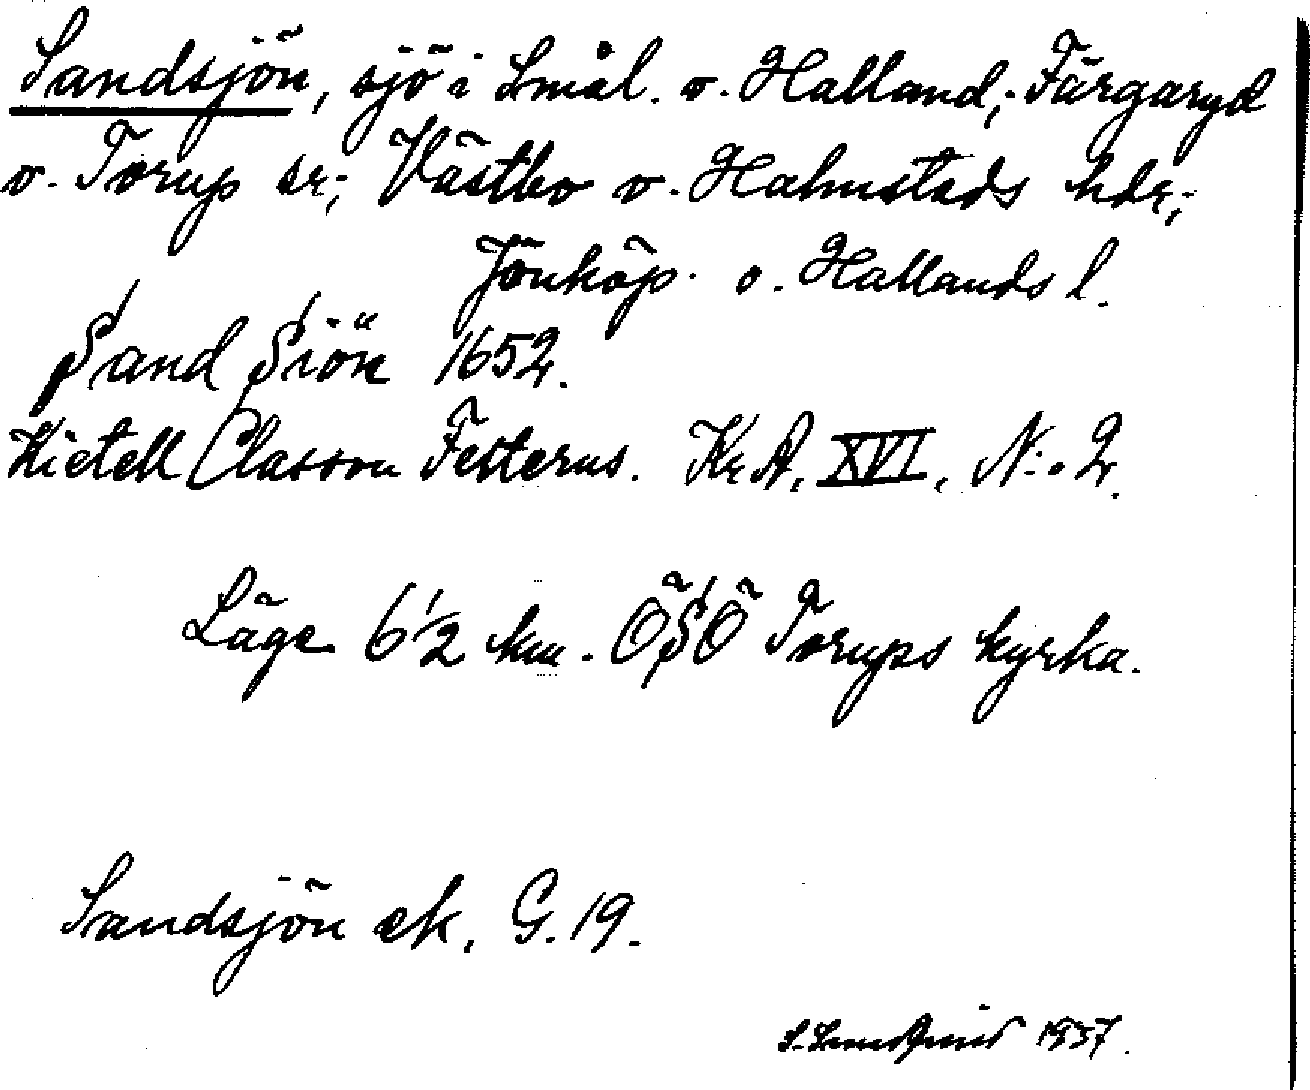 Sandsjön, sjö i Smål. o. Halland; Färgaryd
o. Torup sr; Västbo o. Halmstads hdr;
Jönköp. o. Hallands l.
Sand Siön 1652.
Kietell Classon Felterus. Kr.A. XVI, N:o 2.
Läge 6 1/2 km. ÖSÖ Torups kyrka.
Sandsjön ek. G. 19.
1937.